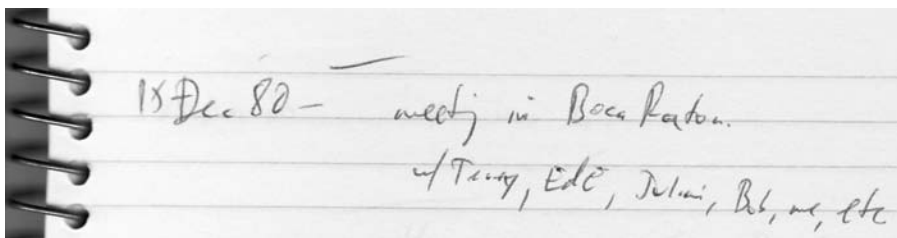 Dec 80 – meeting in Boca Raton.
w/ Terry, Ed E, Julian, Bob, me, etc